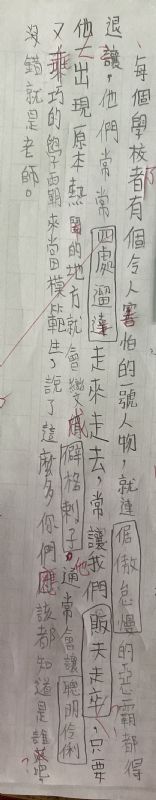 每個學校都有個令人害怕的一號人物，就連倨傲怠慢的惡霸都得
退讓，他們常常四處溜達走來走去，常讓我們販夫走卒，只要
他一出現原本熱鬧的地方就會變成癖格剌子。他通常會讓聰明伶俐
又乖巧的學生來當模範生，說了這麼多你們應該都知道是誰吧
沒錯就是老師。